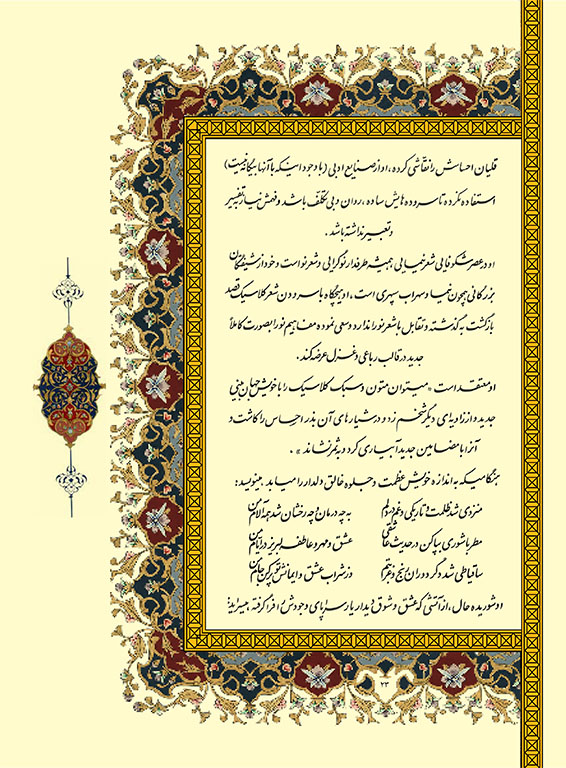 قلیان احساس را نقاشی کرده، او از صنایع ادبی (با وجود اینکه با آنها بیگانه نیست)
استفاده نکرده تا سروده هایش ساده، روان و بی تکلف باشد و فهمش نیاز بتفسیر
و تعبیر نداشته باشد.
او در عصر شکوفایی شعر نیمایی همیشه طرفدار نوگرایی و شعر نو است و خود از شیفتگان
بزرگانی همچون نیما و سهراب سپهری است، او هیچگاه با سرودن شعر کلاسیک قصد
بازگشت به گذشته و تقابل با شعر نو را ندارد و سعی نموده مفاهیم نو را بصورت کاملاً
جدید در قالب رباعی و غزل عرضه کند.
او معتقد است "میتوان متون و سبک کلاسیک را با خویش جهان بینی
جدید و از زاویه ای دیگر شخم زد و در شیارهای آن بذر احساس را کاشت و
آنرا با مضامین جدید آبیاری کرد و بثمر نشاند".
هنگامیکه به اندازه خویش عظمت و جلوه خالق دلدار را میابد. مینوید:
منزوی شد ظلمت و تاریکی و غم در دلم
به چه درمان و چه رخشان شد همه آلام من
مطربا شوری بپا کن در حدیث عاشقی
عشق و مهر و عاطفه لبریز در ایام من
ساقیا طی شد گر دوران رنج و غربتم
وز شراب عشق و ایمانش پر کن جام من
او شوریده حال، از آتشی که عشق و شوق دیدار یار سراپای وجودش را فرا گرفته میسراید:
۲۳